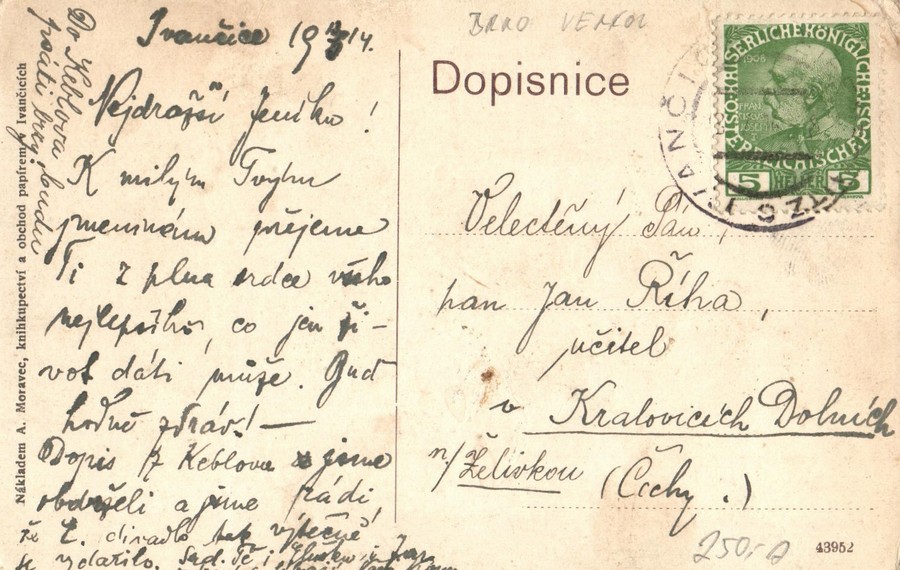 Ivančice 19 14.
Nejdražší Jeníku!
K milým Tvým
jmeninám přejeme
Ti z plna srdce všeho
nejlepšího, co jen ži-
vot dáti může. Buď
hodně zdráv! —
Dopis z Keblova jsme
obdrželi a jsme rádi,
že L. divadlo tak výtečně
se vydařilo.
Do Keblova
psáti brzy budu
Nákladem A. Moravec, knihkupectví a obchod papírem v Ivančicích
BRNO VENKOV
Dopisnice
KAISERLICHE KÖNIGLICHE ÖSTERREICHISCHE POST
1908
FRAN
CISCVS
IOSEPH I
5 HELLER 5
IVANČICE
EIBENSCHITZ
Velectěný Pán,
pan Jan Říha,
učitel
v Kralovicích Dolních
n/Želivkou (Čechy.)
250,-
43952